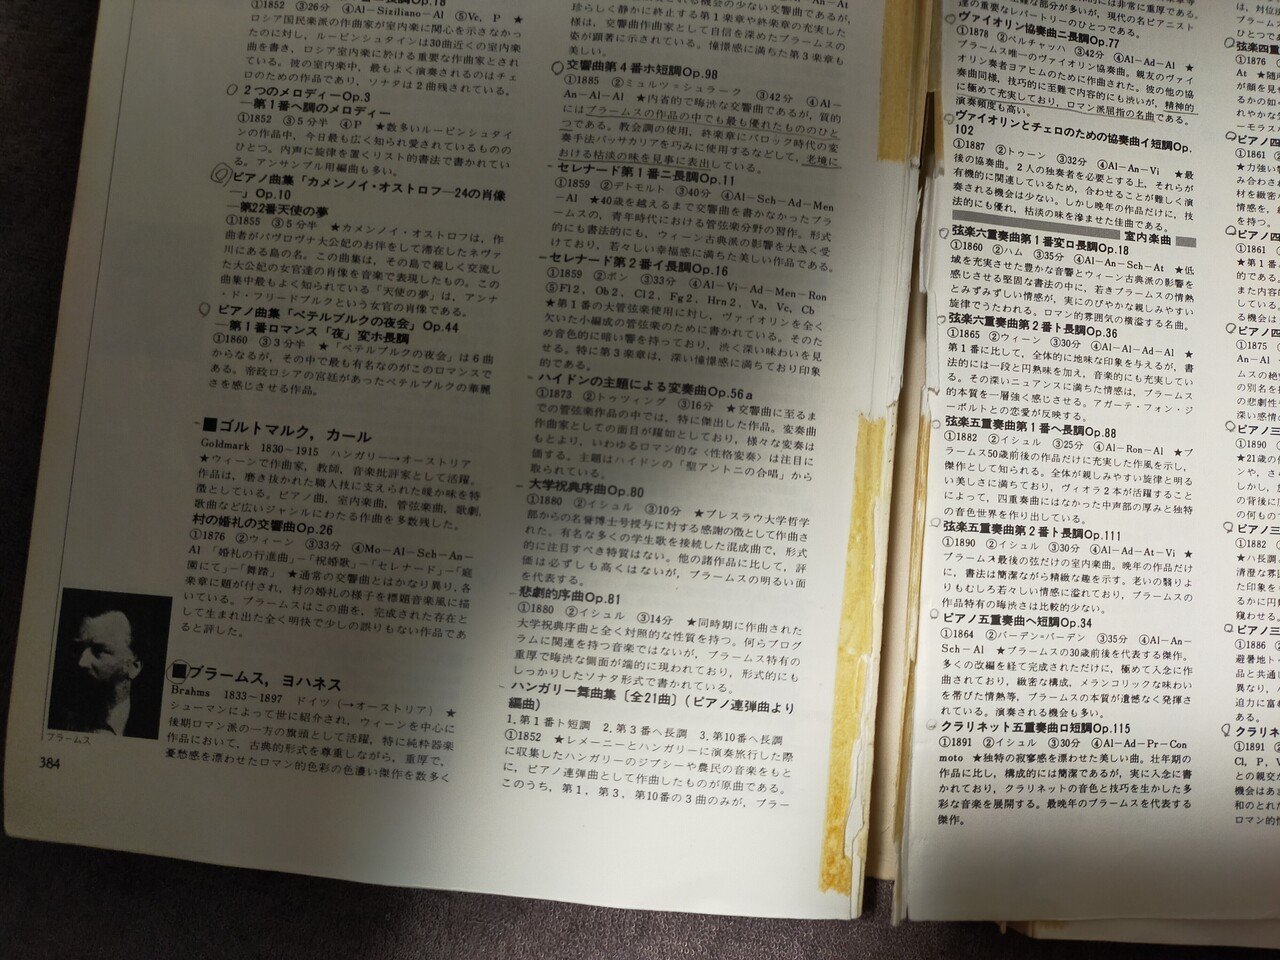 ①1852 ③26分 ④Al－Siziliano－Al ⑤Vc, P ★
ロシア国民楽派の作曲家が室内楽に関心を示さなかっ
たのに対し，ルービンシュタインは30曲近くの室内楽
曲を書き，ロシア室内楽に於ける重要な作曲家とされ
ている。彼の室内楽中，最もよく演奏されるのはチェ
ロのための作品であり，ソナタは2曲残されている。
2つのメロディーOp.3
―第1番ヘ調のメロディー
①1852 ③5分半 ④P ★数多いルービンシュタイ
ンの作品中，今日最も広く知られ愛されているものの
ひとつ。内声に旋律を置くリスト的書法で書かれてい
る。アンサンブル用編曲も多い。
ピアノ曲集「カメンノイ・オストロフ―24の肖像
―」Op.10
―第22番天使の夢
①1855 ③5分半 ★カメンノイ・オストロフは，作
曲者がパヴロヴナ大公妃のお伴をして滞在したネヴァ
川にある島の名。この曲集は，その島で親しく交流し
た大公妃の女官達の肖像を音楽で表現したもの。この
曲集中最もよく知られている「天使の夢」は，アンナ
・ド・フリードブルクという女官の肖像である。
ピアノ曲集「ペテルブルクの夜会」Op.44
―第1番ロマンス「夜」変ホ長調
①1860 ③3分半 ★「ペテルブルクの夜会」は6曲
からなるが，その中で最も有名なのがこのロマンスで
ある。帝政ロシアの宮廷があったペテルブルクの華麗
さを感じさせる作品。
■ゴルトマルク，カール
Goldmark 1830～1915 ハンガリー→オーストリア
★ウィーンで作曲家，教師，音楽批評家として活躍。
作品は，磨き抜かれた職人技に支えられた暖か味を特
徴としている。ピアノ曲，室内楽曲，管弦楽曲，歌劇，
歌曲など広いジャンルにわたる作品を多数残した。
村の婚礼の交響曲Op.26
①1876 ②ウィーン ③33分 ④Mo－Al－Sch－An－
Al 「婚礼の行進曲」―「祝婚歌」―「セレナード」―「庭
園にて」―「舞踏」 ★通常の交響曲とはかなり異り，各
楽章に題が付され，村の婚礼の様子を標題音楽風に描
いている。ブラームスはこの曲を，完成された存在と
して生まれ出た全く明快で少しの誤りもない作品であ
ると評した。
■ブラームス，ヨハネス
Brahms 1833～1897 ドイツ（→オーストリア） ★
シューマンによって世に紹介され，ウィーンを中心に
後期ロマン派の一方の旗頭として活躍，特に純粋器楽
作品において，古典的形式を尊重しながら，重厚で，
憂愁感を漂わせたロマン的色彩の色濃い傑作を数多く
ブラームス
384
珍らしく静かに終止する第1楽章や終楽章の充実した
様は，交響曲作曲家として自信を深めたブラームスの
姿が顕著に示されている。憧憬に満ちた第3楽章も
美しい。
交響曲第4番ホ短調Op.98
①1885 ②ミュルツシュラーク ③42分 ④Al－
An－Al－Al ★内省的で晦渋な交響曲であるが，質的
にはブラームスの作品の中でも最も優れたもののひと
つである。教会調の使用，終楽章にバロック時代の変
奏手法パッサカリアを巧みに使用するなどして，老境に
おける枯淡の味を見事に表出している。
セレナード第1番ニ長調Op.11
①1859 ②デトモルト ③40分 ④Al－Sch－Ad－Men
－Al ★40歳を越えるまで交響曲を書かなかったブラ
ームスの，青年時代における管弦楽分野の習作。形式
的にも書法的にも，ウィーン古典派の影響を大きく受
けており，若々しい幸福感に満ちた美しい作品である。
セレナード第2番イ長調Op.16
①1859 ②ボン ③33分 ④Al－Vi－Ad－Men－Ron
⑤Fl2, Ob2, Cl2, Fg2, Hrn2, Va, Vc, Cb
★第1番の大管弦楽使用に対し，ヴァイオリンを全く
欠いた小編成の管弦楽のために書かれている。そのた
め音色的に暗い響を持っており，渋く深い味わいを見
せる。特に第3楽章は，深い憧憬感に満ちており印象
的である。
ハイドンの主題による変奏曲Op.56a
①1873 ②トゥツィング ③16分 ★交響曲に至るま
での管弦楽作品の中では，特に傑出した作品。変奏曲
作曲家としての面目が躍如としており，様々な変奏は
もとより，いわゆるロマン的な〈性格変奏〉は注目に
価する。主題はハイドンの「聖アントニの合唱」から
取られている。
大学祝典序曲Op.80
①1880 ②イシュル ③10分 ★ブレスラウ大学哲学
部からの名誉博士号授与に対する感謝の徴として作曲さ
れた。有名な多くの学生歌を接続した混成曲で，形式
的に注目すべき特質はない。他の諸作品に比して，評
価は必ずしも高くはないが，ブラームスの明るい面
を代表する。
悲劇的序曲Op.81
①1880 ②イシュル ③14分 ★同時期に作曲された
大学祝典序曲と全く対照的な性質を持つ。何らプログ
ラムに関連を持つ音楽ではないが，ブラームス特有の
重厚で晦渋な側面が端的に現われており，形式的にも
しっかりしたソナタ形式で書かれている。
ハンガリー舞曲集〔全21曲〕（ピアノ連弾曲より
編曲）
1.第1番ト短調 2.第3番ヘ長調 3.第10番ヘ長調
①1852 ★レメーニーとハンガリーに演奏旅行した際
に収集したハンガリーのジプシーや農民の音楽をもと
に，ピアノ連弾曲として作曲したものが原曲である。
このうち，第1，第3，第10番の3曲のみが，ブラー
達の重要なレパートリーのひとつである。
ヴァイオリン協奏曲ニ長調Op.77
①1878 ②ペルチャッハ ③42分 ④Al－Ad－Al ★
ブラームス唯一のヴァイオリン協奏曲。親友のヴァイ
オリン奏者ヨアヒムのために作曲された。彼の他の協
奏曲同様，技巧的に至難で内容的にも渋いが，精神的
に極めて充実しており，ロマン派屈指の名曲である。
演奏頻度も高い。
ヴァイオリンとチェロのための協奏曲イ短調Op.
102
①1887 ②トゥーン ③32分 ④Al－An－Vi ★最
後の協奏曲。2人の独奏者を必要とする上，それらが
有機的に関連しているため，合わせることが難しく演
奏される機会は少ない。しかし晩年の作品だけに，技
法的にも優れ，枯淡の味を滲ませた佳曲である。
室内楽曲
弦楽六重奏曲第1番変ロ長調Op.18
①1860 ②ハム ③35分 ④Al－An－Sch－At ★低
域を充実させた豊かな音響とウィーン古典派の影響を
感じさせる堅固な書法の中に，若きブラームスの情熱
とみずみずしい情感が，実にのびやかな親しみやすい
旋律でうたわれる。ロマン的雰囲気の横溢する名曲。
弦楽六重奏曲第2番ト長調Op.36
①1865 ②ウィーン ③30分 ④Al－Al－Ad－Al ★
第1番に比して，全体的に地味な印象を与えるが，書
法的には一段と円熟味を加え，音楽的にも充実してい
る。その深いニュアンスに満ちた情感は，ブラームス
的本質を一層強く感じさせる。アガーテ・フォン・ジ
ーボルトとの恋愛が反映する。
弦楽五重奏曲第1番ヘ長調Op.88
①1882 ②イシュル ③25分 ④Al－Ron－Al ★ブ
ラームス50歳前後の作品だけに充実した作風を示し，
傑作として知られる。全体が親しみやすい旋律と明る
い美しさに満ちており，ヴィオラ2本が活躍すること
によって，四重奏曲にはなかった中声部の厚みと独特
の音色世界を作り出している。
弦楽五重奏曲第2番ト長調Op.111
①1890 ②イシュル ③30分 ④Al－Ad－At－Vi ★
ブラームス最後の弦だけの室内楽曲。晩年の作品だけ
に，書法は簡潔ながら精緻な趣を示す。老いの翳りよ
りもむしろ若々しい情感に溢れており，ブラームスの
作品特有の晦渋さは比較的少ない。
ピアノ五重奏曲ヘ短調Op.34
①1864 ②バーデン＝バーデン ③35分 ④Al－An－
Sch－Al ★ブラームスの30歳前後を代表する傑作。
多くの改編を経て完成されただけに，極めて入念に作
曲されており，緻密な構成，メランコリックな味わい
を帯びた情熱等，ブラームスの本質が遺憾なく発揮さ
れている。演奏される機会も多い。
クラリネット五重奏曲ロ短調Op.115
①1891 ②イシュル ③30分 ④Al－Ad－Pr－Con
moto ★独特の寂寥感を漂わせた美しい曲。壮年期の
作品に比し，構成的には簡潔であるが，実に入念に書
かれており，クラリネットの音色と技巧を生かした多
彩な音楽を展開する。最晩年のブラームスを代表する
傑作。